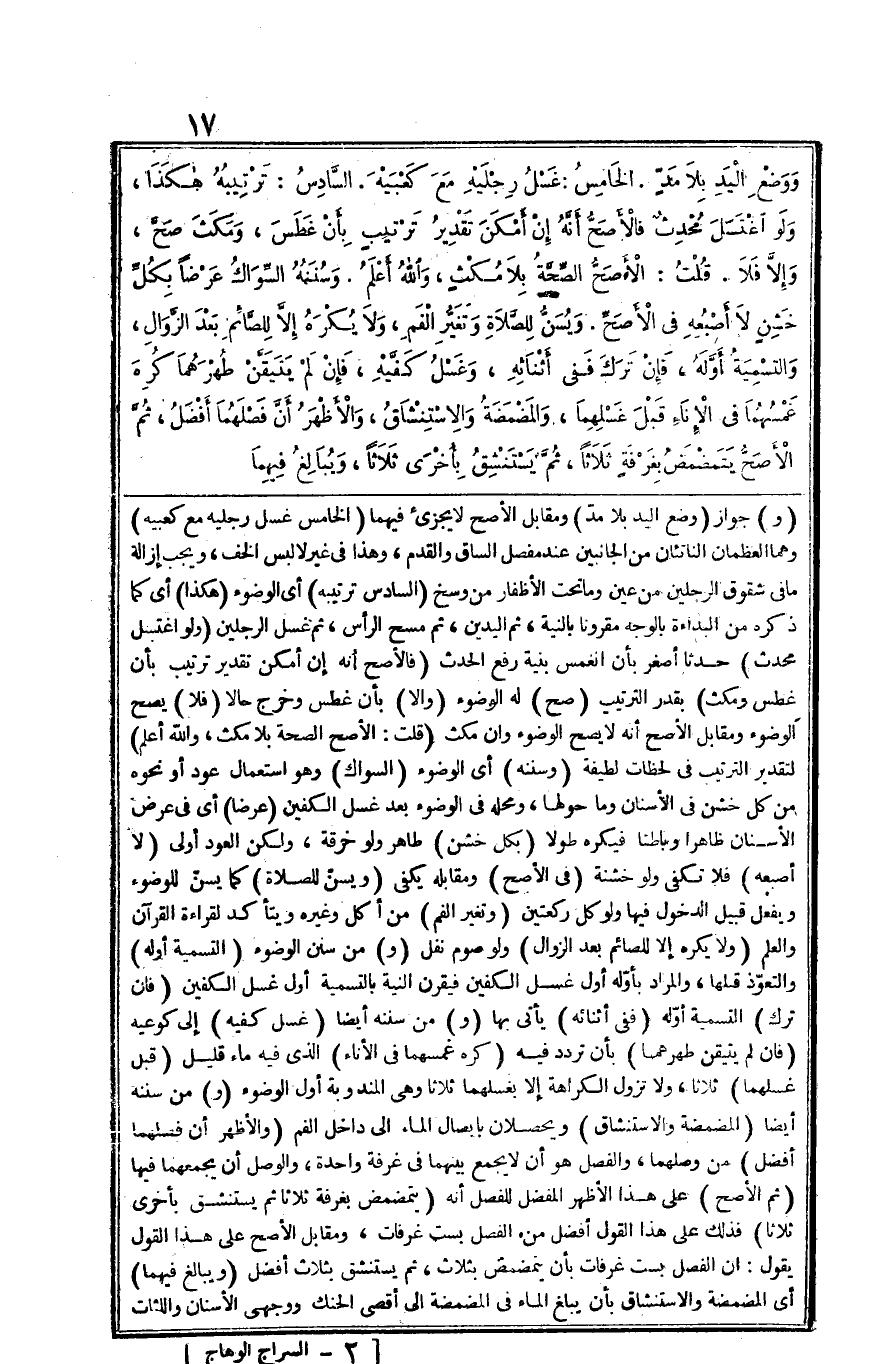 ١٧
وَوَضْعِ الْيَدِ بِلاَ مَدٍّ . الخَامِسُ : غَسْلُ رِجْلَيْهِ مَعَ كَعْبَيْهِ . السَّادِسُ : تَرْتِيبُهُ هٰكَذَا ،
وَلَوِ اغْتَسَلَ مُحْدِثٌ فَالْأَصَحُّ أَنَّهُ إِنْ أَمْكَنَ تَقْدِيرُ تَرْتِيبٍ بِأَنْ غَطَسَ ، وَمَكَثَ صَحَّ ،
وَإِلاَّ فَلَا . قُلْتُ : الْأَصَحُّ الصِّحَّةُ بِلاَ مُكْثٍ ، وَاللهُ أَعْلَمُ . وَسُنَنُهُ السِّوَاكُ عَرْضاً بِكُلِّ
خَشِنٍ لاَ أَصْبُعِهِ فِى الْأَصَحِّ . وَيُسَنُّ لِلصَّلاَةِ وَتَغَيُّرِ الْفَمِ ، وَلاَ يُكْرَهُ إِلاَّ لِلصَّائِمِ بَعْدَ الزَّوَالِ ،
وَالتَّسْمِيَةُ أَوَّلَهُ ، فَإِنْ تَرَكَ فَفِى أَثْنَائِهِ ، وَغَسْلُ كَفَّيْهِ ، فَإِنْ لَمْ يَتَيَقَّنْ طُهْرَهُمَا كُرِهَ
غَمْسُهُمَا فِى الْإِنَاءِ قَبْلَ غَسْلِهِمَا ، وَالمَضْمَضَةُ وَالِاسْتِنْشَاقُ ، وَالْأَظْهَرُ أَنَّ فَصْلَهُمَا أَفْضَلُ ، ثُمَّ
الْأَصَحُّ يَتَمَضْمَضُ بِغَرْفَةٍ ثَلَاثاً ، ثُمَّ يَسْتَنْشِقُ بِأُخْرَى ثَلَاثاً ، وَيُبَالِغُ فِيهِمَا
( و ) جواز ( وضع اليد بلا مدّ ) ومقابل الأصح لايجزئ فيهما ( الخامس غسل رجليه مع كعبيه )
وهما العظمان الناتئان من الجانبين عند مفصل الساق والقدم ، وهذا فى غير لابس الخف ، ويجب إزالة
مافى شقوق الرجلين من عين وماتحت الأظفار من وسخ ( السادس ترتيبه ) أى الوضوء ( هكذا ) أى كما
ذكره من البداءة بالوجه مقرونا بالنية ، ثم اليدين ، ثم مسح الرأس ، ثم غسل الرجلين ( ولو اغتسل
محدث ) حدثا أصغر بأن انغمس بنية رفع الحدث ( فالأصح أنه إن أمكن تقدير ترتيب بأن
غطس ومكث ) بقدر الترتيب ( صح ) له الوضوء ( والا ) بأن غطس وخرج حالا ( فلا ) يصح
الوضوء ومقابل الأصح أنه لايصح الوضوء وان مكث ( قلت : الأصح الصحة بلا مكث ، والله أعلم )
لتقدير الترتيب فى لحظات لطيفة ( وسننه ) أى الوضوء ( السواك ) وهو استعمال عود أو نحوه
من كل خشن فى الأسنان وما حولها ، ومحله فى الوضوء بعد غسل الكفين ( عرضا ) أى فى عرض
الأسنان ظاهرا وباطنا فيكره طولا ( بكل خشن ) طاهر ولو خرقة ، ولكن العود أولى ( لا
أصبعه ) فلا تكفى ولو خشنة ( فى الأصح ) ومقابله يكفى ( ويسنّ للصلاة ) كما يسنّ للوضوء
ويفعل قبيل الدخول فيها ولو كل ركعتين ( وتغير الفم ) من أكل وغيره ويتأكد لقراءة القرآن
والعلم ( ولا يكره إلا للصائم بعد الزوال ) ولو صوم نفل ( و ) من سنن الوضوء ( التسمية أوله )
والتعوّذ قبلها ، والمراد بأوّله أول غسل الكفين فيقرن النية بالتسمية أول غسل الكفين ( فان
ترك ) التسمية أوّله ( ففى أثنائه ) يأتى بها ( و ) من سننه أيضا ( غسل كفيه ) إلى كوعيه
( فان لم يتيقن طهرهما ) بأن تردد فيه ( كره غمسهما فى الأناء ) الذى فيه ماء قليل ( قبل
غسلهما ) ثلاثا ، ولا تزول الكراهة إلا بغسلهما ثلاثا وهى المندوبة أول الوضوء ( و ) من سننه
أيضا ( المضمضة والاستنشاق ) ويحصلان بإيصال الماء الى داخل الفم ( والأظهر أن فصلهما
أفضل ) من وصلهما ، والفصل هو أن لايجمع بينهما فى غرفة واحدة ، والوصل أن يجمعهما فيها
( ثم الأصح ) على هذا الأظهر المفضل للفصل أنه ( يتمضمض بغرفة ثلاثا ثم يستنشق بأخرى
ثلاثا ) فذلك على هذا القول أفضل من الفصل بست غرفات ، ومقابل الأصح على هذا القول
يقول : ان الفصل بست غرفات بأن يتمضمض بثلاث ، ثم يستنشق بثلاث أفضل ( ويبالغ فيهما )
أى المضمضة والاستنشاق بأن يبلغ الماء فى المضمضة الى أقصى الحنك ووجهى الأسنان واللثات
[ ٢ - السراج الوهاج ]